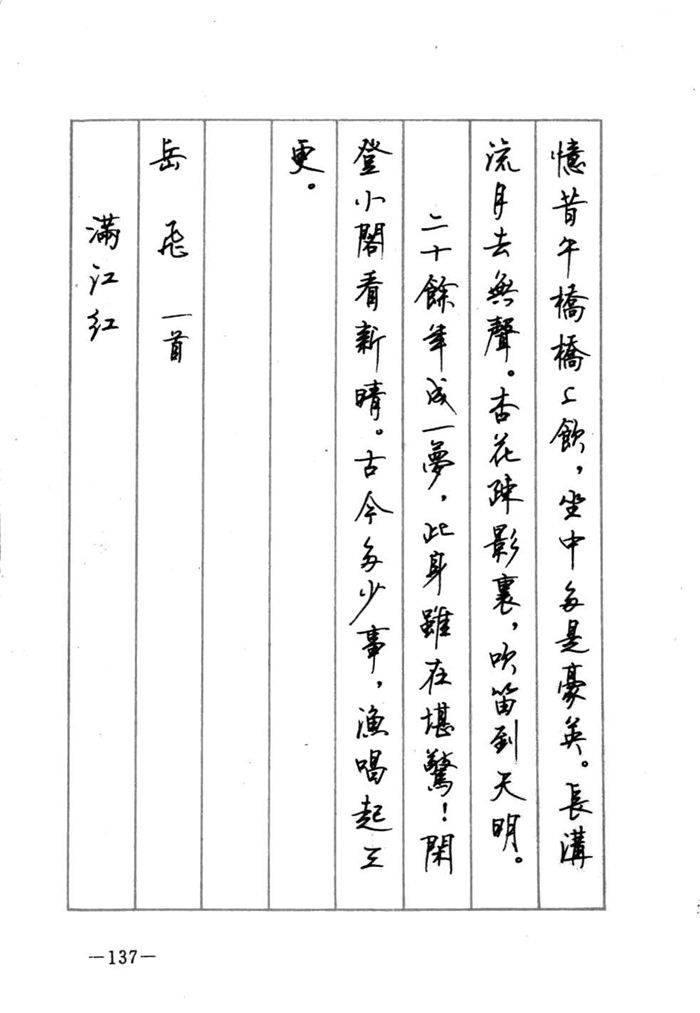 憶昔午橋橋上飲，坐中多是豪英。長溝
流月去無聲。杏花疎影裏，吹笛到天明。
二十餘年成一夢，此身雖在堪驚！閑
登小閣看新晴。古今多少事，漁唱起三
更。
岳飛 一首
滿江紅
—137—